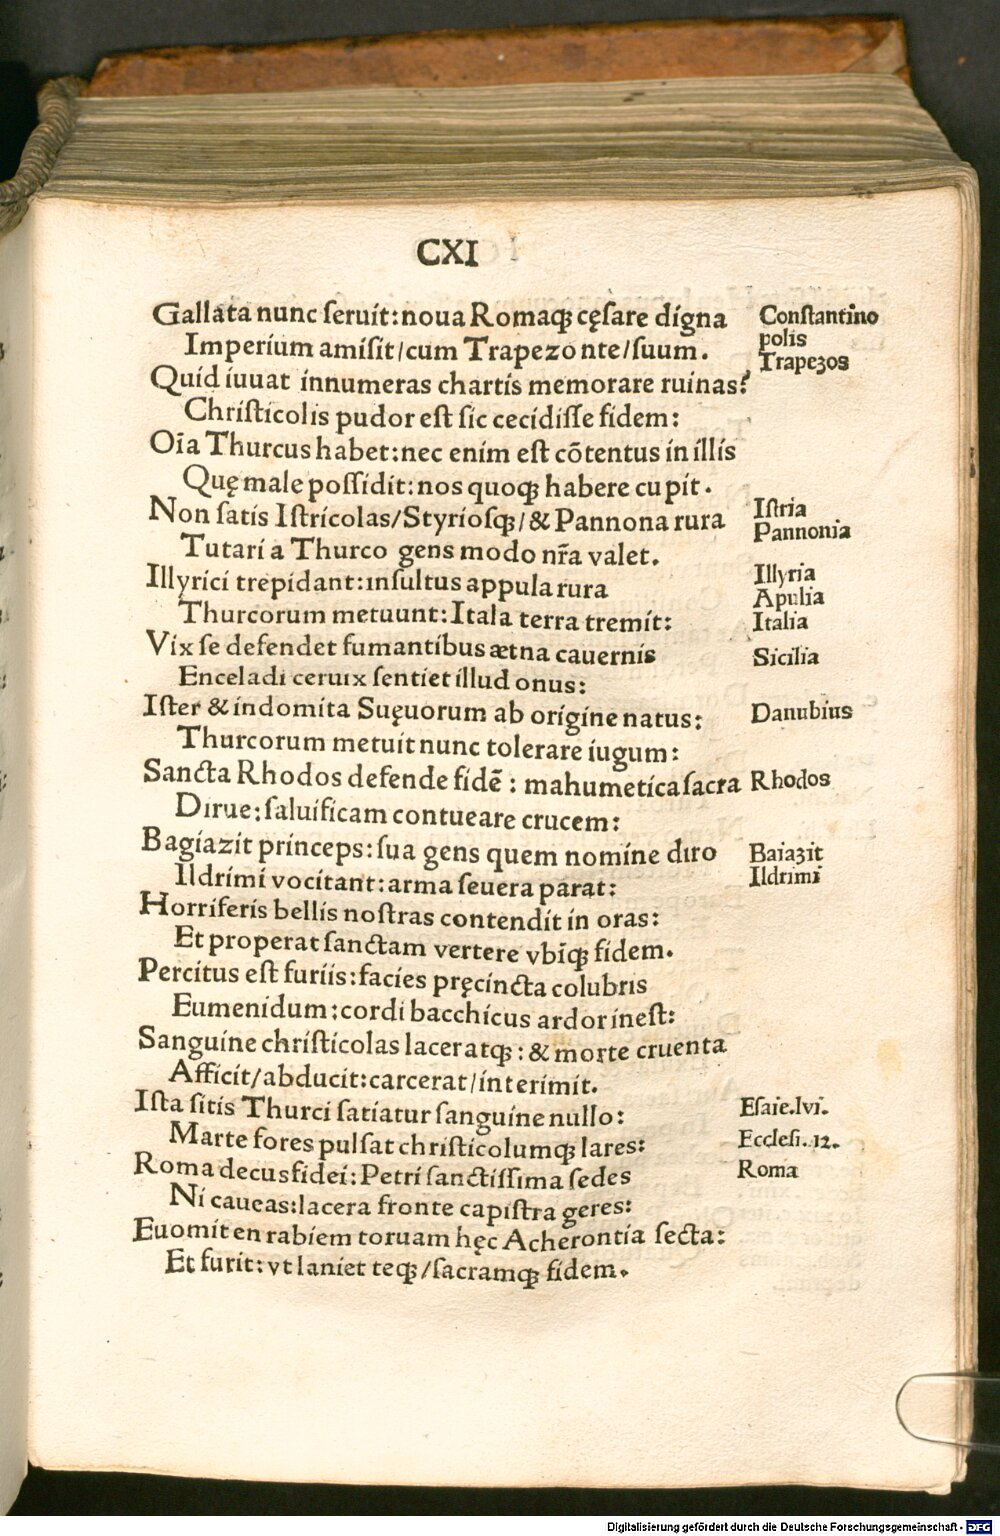 CXI
Gallata nunc ſeruit:noua Romaqꝫ cęſare digna
Constantino
Imperium amiſit/cum Trapezonte/ſuum.
polis
Trapeʒos
Quid iuuat innumeras chartis memorare ruinas?
Chriſticolis pudor eſt ſic cecidiſſe fidem:
Oīa Thurcus habet:nec enim eſt cōtentus in illis
Quę male poſſidit:nos quoqꝫ habere cupit.
Non ſatis Iſtricolas/Styrioſqꝫ/& Pannona rura
Iſtria
Pannonia
Tutari a Thurco gens modo nr̄a valet.
Illyrici trepidant:inſultus appula rura
Illyria
Apulia
Thurcorum metuunt:Itala terra tremit:
Italia
Vix ſe defendet fumantibus ætna cauernis
Sicilia
Enceladi ceruix ſentiet illud onus:
Iſter & indomita Suęuorum ab origine natus:
Danubius
Thurcorum metuit nunc tolerare iugum:
Sancta Rhodos defende fidē: mahumetica ſacra
Rhodos
Dirue:ſaluificam contueare crucem:
Bagiazit princeps:ſua gens quem nomine diro
Baiaʒit
Ildrimi vocitant:arma ſeuera parat:
Ildrimi
Horriferis bellis noſtras contendit in oras:
Et properat ſanctam vertere vbīqꝫ fidem.
Percitus eſt furiis:facies pręcincta colubris
Eumenidum:cordi bacchicus ardor ineſt:
Sanguine chriſticolas laceratqꝫ:& morte cruenta
Afficit/abducit:carcerat/interimit.
Iſta ſitis Thurci ſatiatur ſanguine nullo:
Eſaie.lvi.
Marte fores pulſat chriſticolumqꝫ lares:
Eccleſi.12.
Roma decus fidei:Petri ſanctiſſima ſedes
Roma
Ni caueas:lacera fronte capiſtra geres:
Euomit en rabiem toruam hęc Acherontia ſecta:
Et furit:vt laniet teqꝫ/ſacramqꝫ fidem.
Digitalisierung gefördert durch die Deutsche Forschungsgemeinschaft - DFG